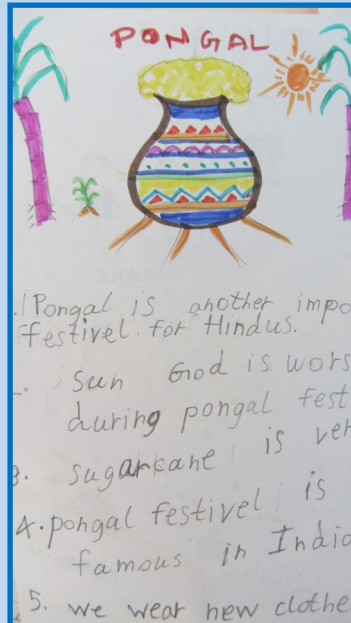 PONGAL
1 Pongal is another impo
festivel for Hindus.
2. Sun God is wors
during pongal fest
3. sugarcane is ver
4. pongal festivel is
famous in India
5. we wear new clothe